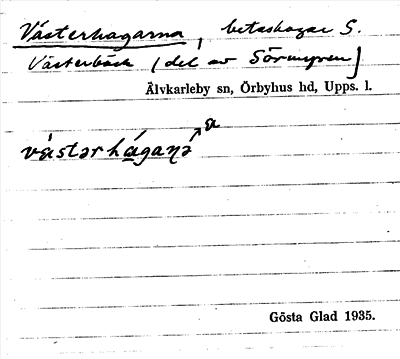 Västerhagarna, betashagar S.
Västerbäck (del av Sörmyren)
Älvkarleby sn, Örbyhus hd, Upps. l.
Gösta Glad 1935.